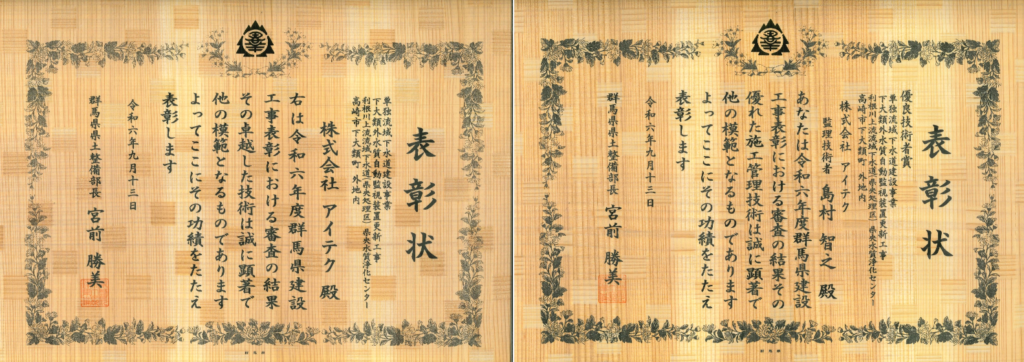 表彰状
単独流域下水道建設事業
下大類外水質自動監視装置更新工事
利根川上流流域下水道(県央処理区)県央水質浄化センター
高崎市下大類町 外地内
株式会社 アイテク 殿
右は令和六年度群馬県建設
工事表彰における審査の結果
その卓越した技術は誠に顕著で
他の模範となるものであります
よってここにその功績をたたえ
表彰します
令和六年九月十三日
群馬県県土整備部長 宮前 勝美
表彰状
優良技術者賞
単独流域下水道建設事業
下大類外水質自動監視装置更新工事
利根川上流流域下水道(県央処理区)県央水質浄化センター
高崎市下大類町 外地内
株式会社 アイテク
監理技術者 島村 智之 殿
あなたは令和六年度群馬県建設
工事表彰における審査の結果その
優れた施工管理技術は誠に顕著で
他の模範となるものであります
よってここにその功績をたたえ
表彰します
令和六年九月十三日
群馬県県土整備部長 宮前 勝美